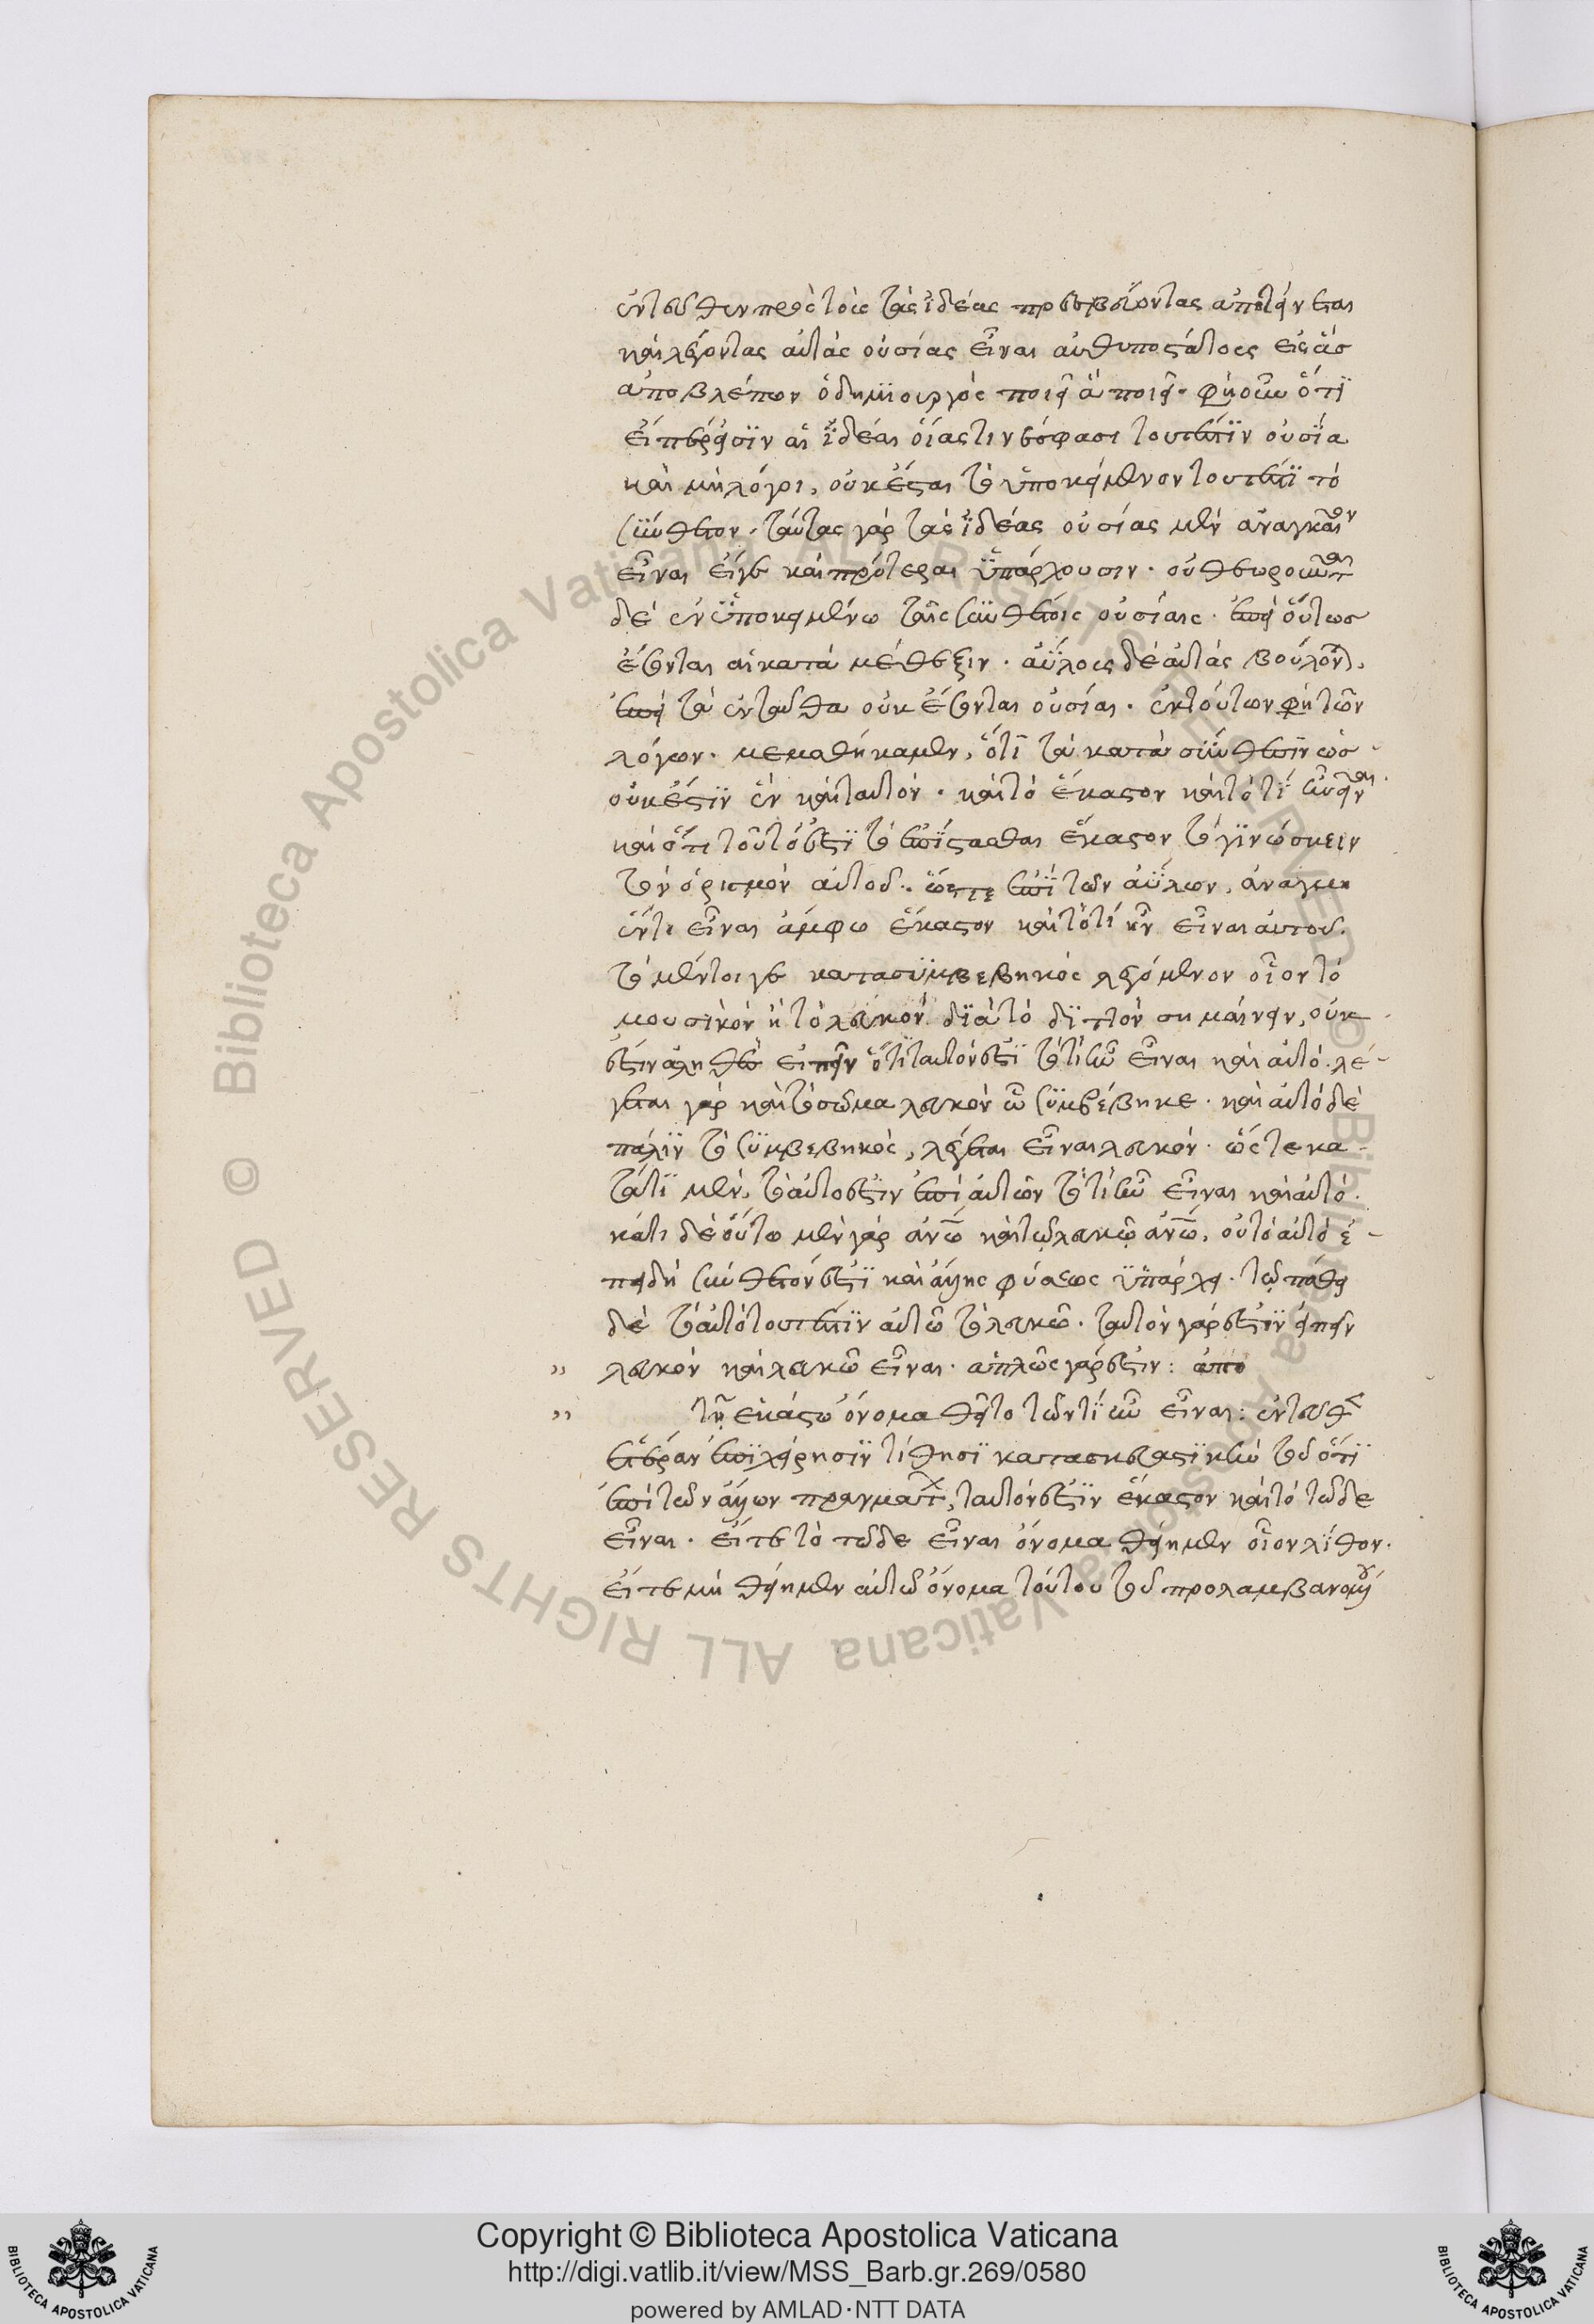 ἐντεῦθεν πρὸς τοὺς τὰς ἰδέας πρεσβεύοντας ἀποτείνεται
καὶ λέγοντας αὐτὰς οὐσίας εἶναι αὐθυποστάτους εἰς ἃσ
ἀποβλέπων ὁ δημιουργὸς ποιεῖ ἃ ποιεῖ· φησὶν οὖν ὅτι
εἴπερ εἰσὶν αἱ ἰδέαι οἵας τινές φασι τουτέστιν οὐσία
καὶ μὴ λόγοι, οὐκ ἔσται τὸ ὑποκείμενον τουτέστι τὸ
σύνθετον· ταύτας γὰρ τὰς ἰδέας οὐσίας μὲν ἀναγκαῖον
εἶναι εἴγε καὶ πρότεραι ὑπάρχουσιν· οὐ θεωροῦνται
δὲ ἐν ὑποκειμένω ταῖς συνθέτοις οὐσίαις· ἐπεὶ οὕτωσ
ἔσονται αἱ κατὰ μέθεξιν· ἀΰλους δὲ αὐτὰς βούλονται.
ἐπεὶ τὰ ἐνταῦθα οὐκ ἔσονται οὐσίαι· ἐκ τούτων φησὶ τῶν
λόγων· μεμαθήκαμεν, ὅτι τὰ κατὰ σύνθεσιν ὡσ
οὐκ ἔστιν ἓν καὶ ταυτὸν· καὶ τὸ ἕκαστον καὶ τὸ τί ἦν εἶναι·
καὶ ὅτι τοῦτό ἐστι τὸ ἐπίστασθαι ἕκαστον τὸ γινώσκειν
τὸν ὁρισμὸν αὐτοῦ· ὥστε ἐπὶ τῶν ἀΰλων, ἀνάγκη
ἕν τι εἶναι ἄμφω ἕκαστον καὶ τὸ τί ἦν εἶναι αὐτοῦ.
τὸ μέντοι γε κατασυμβεβηκὸς λεγόμενον οἷον τὸ
μουσικὸν ἢ τὸ λευκόν. διὰ τὸ διττὸν σημαίνειν, οὐκ
ἔστιν ἀληθὲς εἰπεῖν ὅτι ταυτόν ἐστι τὸ τί ἦν εἶναι καὶ αὐτό. λέ-
γεται γὰρ καὶ τὸ σῶμα λευκὸν ὧ συμβέβηκε· καὶ αὐτὸ δὲ
πάλιν τὸ συμβεβηκὸς, λέγεται εἶναι λευκόν· ὥς τε κα-
τά τι μὲν, τὸ αὐτό ἐστιν ἐπὶ αὐτῶν τὸ τί ἦν εἶναι καὶ αὐτὸ.
κατι δὲ οὔ τω μὲν γὰρ ἀνω καὶ τῷ λευκῷ ἀνω, οὐ τὸ αὐτὸ ἐ-
πειδὴ σύνθετόν ἐστι καὶ ἄλλης φύσεως ὑπάρχει· τῷ πάθει
δὲ τὸ αὐτὸ τουτέστιν αὐτῶ τὸ λευκῶ· ταυτὸν γάρ ἐστιν εἰπεῖν
" λευκὸν καὶ λευκῶ εἶναι· ἁπλῶς γάρ ἐστιν: ἄτοπο
" τῃ ἑκάστω ὄνομα θεῖτο τῶν τί ἦν εἶναι: ἐντεῦθεν
ἑτέραν ἐπιχείρησιν τίθησι κατασκευαστικὴν τοῦ ὅτι
ἐπὶ τῶν ἄλλων πραγμάτων, ταυτόν ἐστιν ἕκαστον καὶ τὸ τῶδε
εἶναι· εἴτε τὸ τῶδε εἶναι ὄνομα θείημεν οἷον λίθον·
εἴτε μὴ θείημεν αὐτῶ ὄνομα τούτου τοῦ προλαμβανομένου